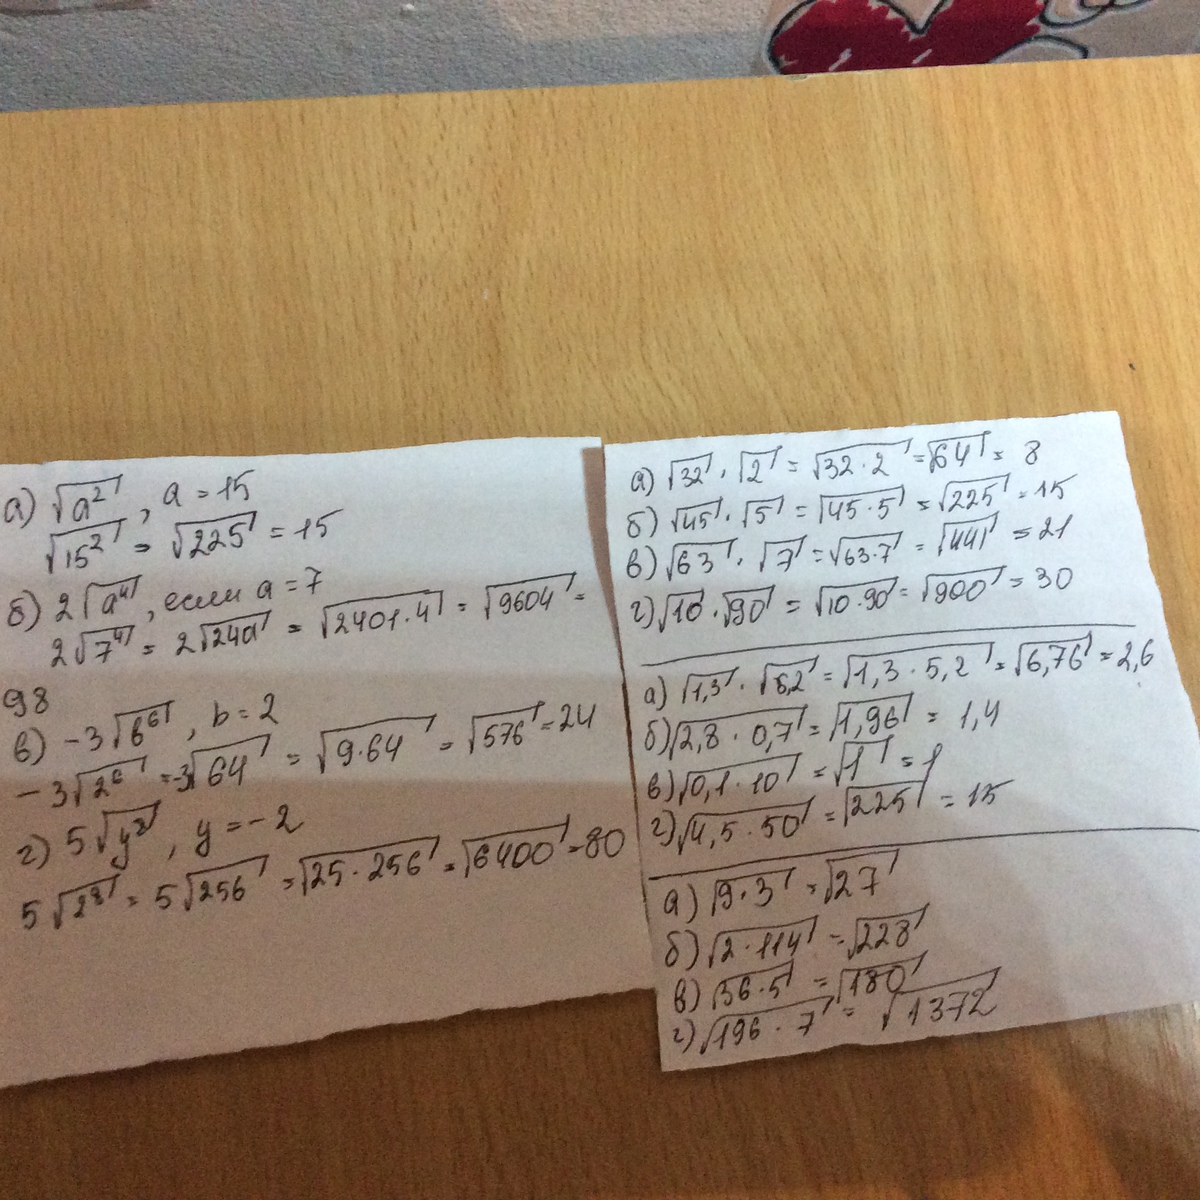 а) √a², a = 15
√15² = √225 = 15
б) 2√a⁴, если a = 7
2√7⁴ = 2√2401 = √2401·4 = √9604 =
98
в) -3√b⁶, b = 2
-3√2⁶ = -3√64 = √9·64 = √576 = 24
г) 5√y⁸, y = -2
5√2⁸ = 5√256 = √25·256 = √6400 = 80
а) √32 · √2 = √32·2 = √64 = 8
б) √45 · √5 = √45·5 = √225 = 15
в) √63 · √7 = √63·7 = √441 = 21
г) √10 · √90 = √10·90 = √900 = 30
а) √1,3 · √5,2 = √1,3·5,2 = √6,76 = 2,6
б) √2,8·0,7 = √1,96 = 1,4
в) √0,1·10 = √1 = 1
г) √4,5·50 = √225 = 15
а) √9·3 = √27
б) √2·114 = √228
в) √36·5 = √180
г) √196·7 = √1372